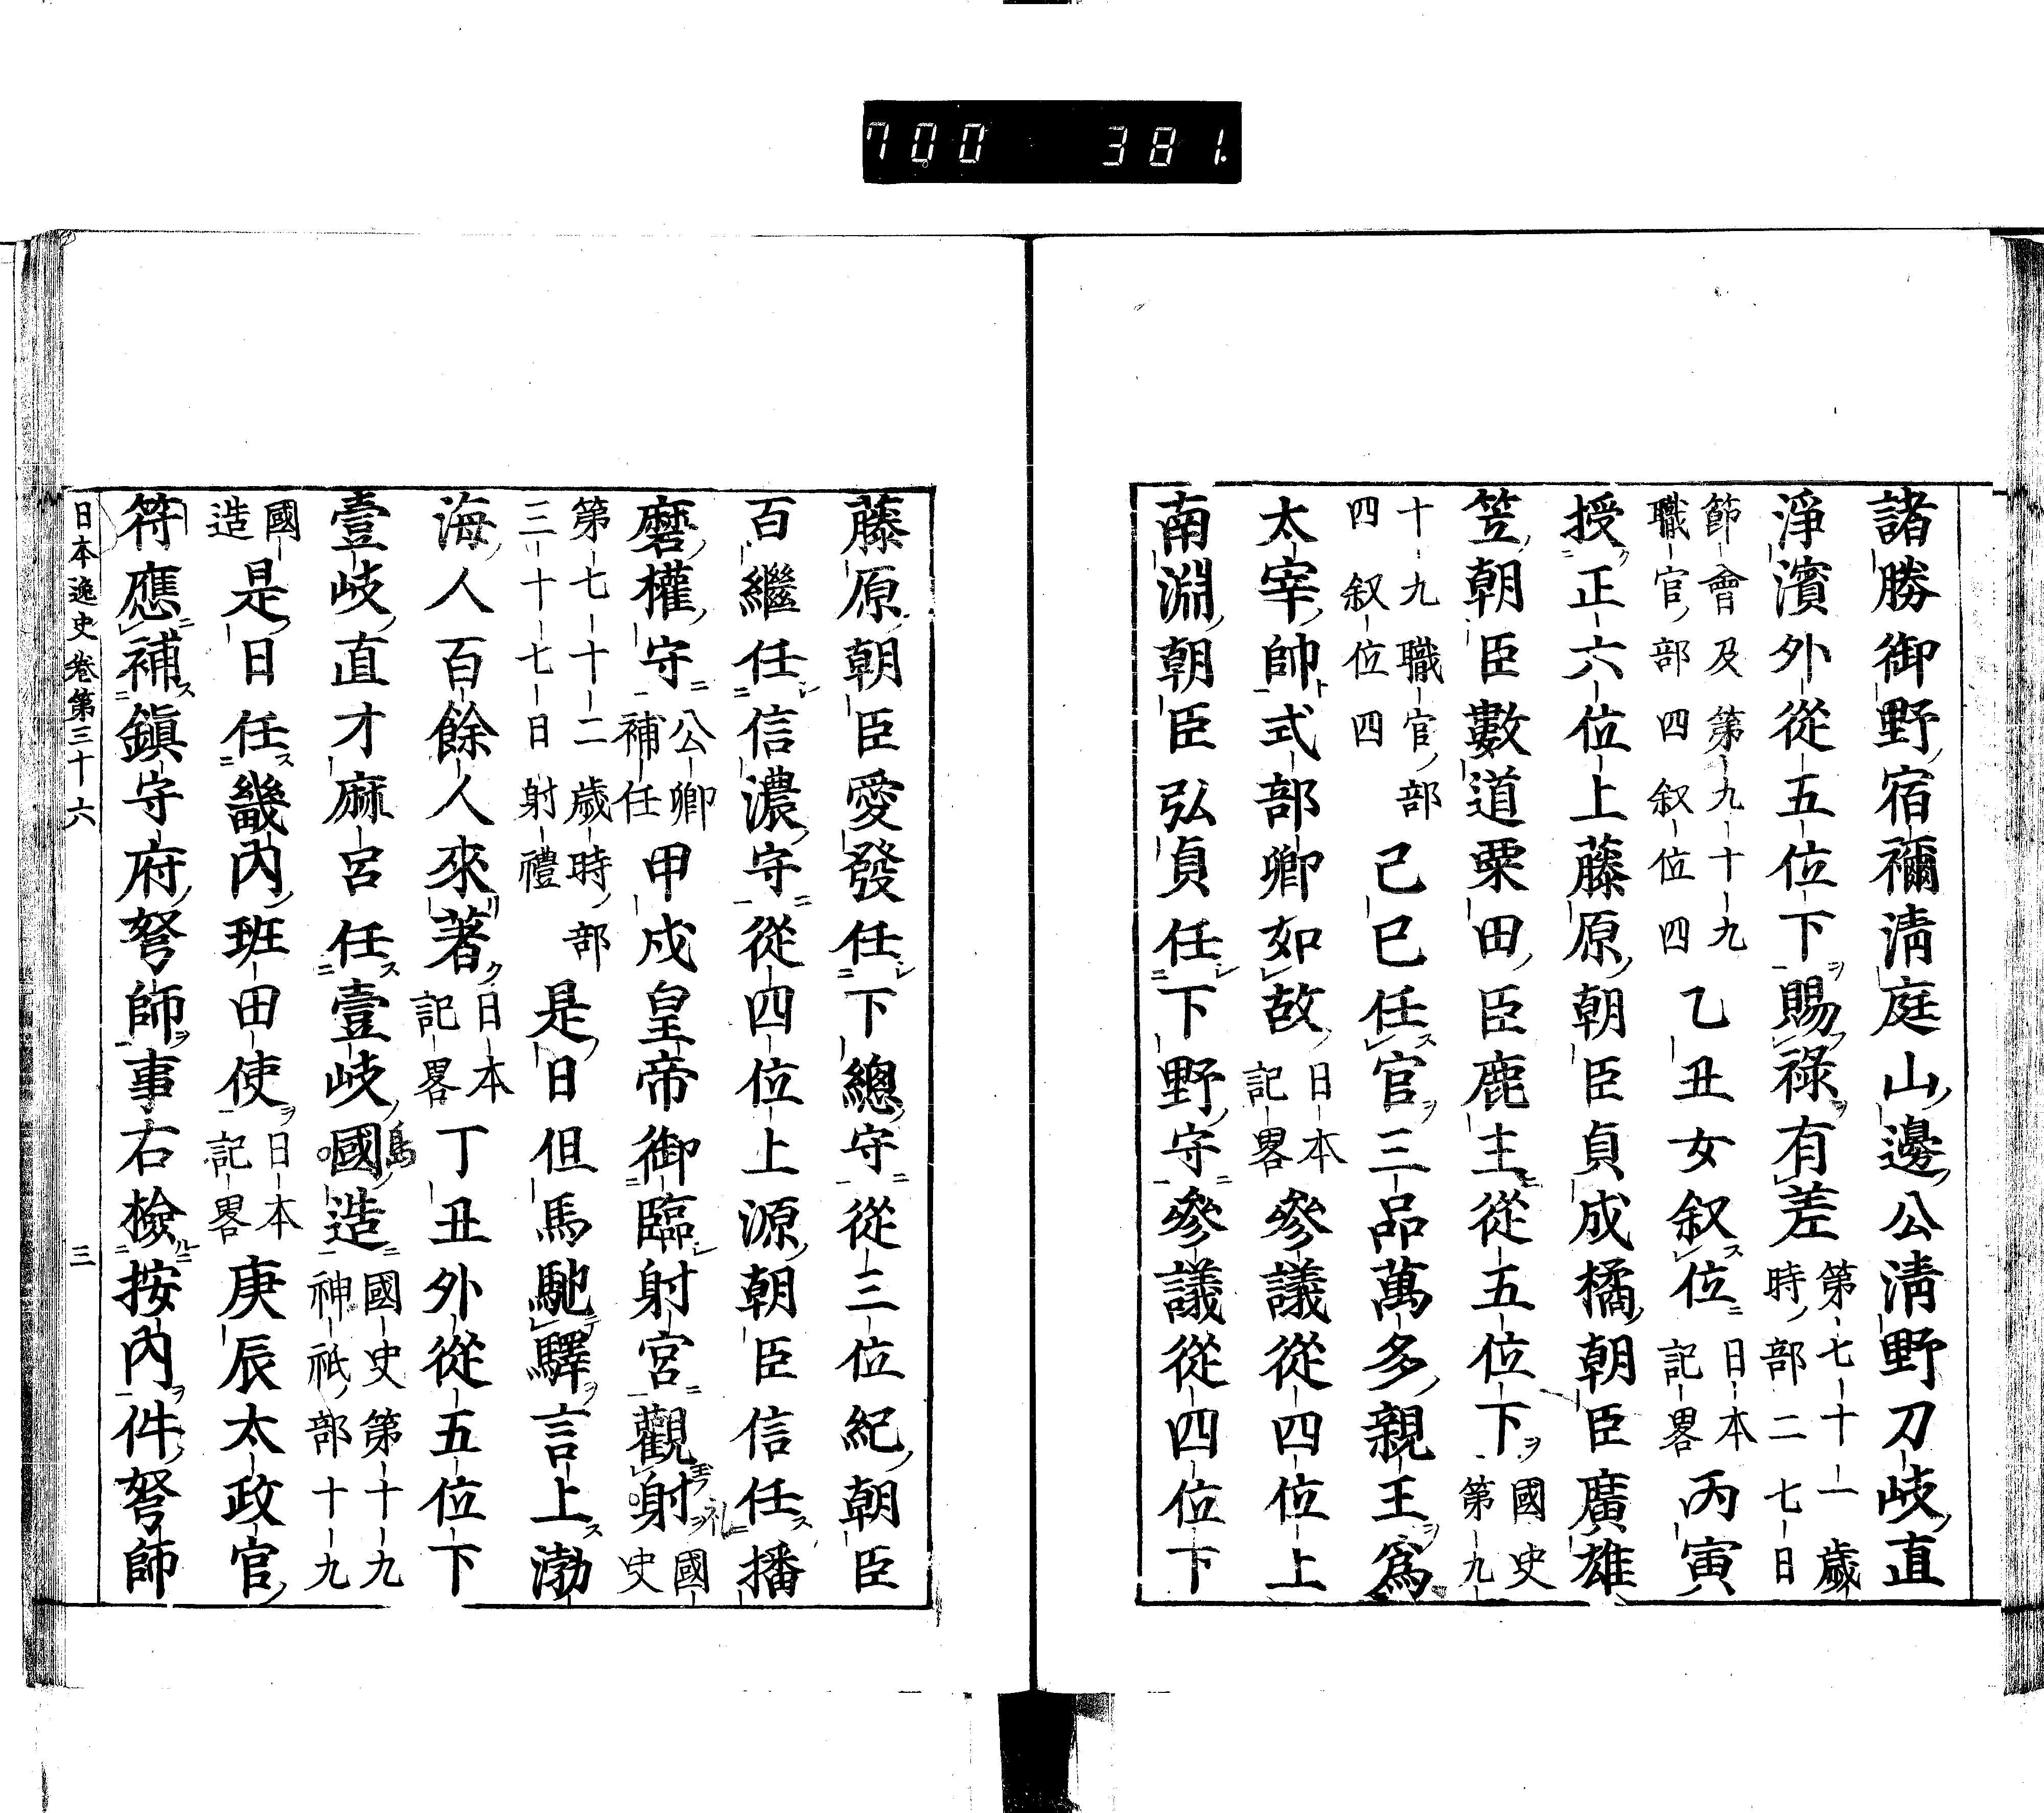 700 381
諸勝御野宿禰淸庭山邊公淸野刀岐直
淨濱外從五位下賜祿有差第七十一歲時部二七日
節會及第九十九職官部四叙位四乙丑女叙位日本記畧丙寅
授正六位上藤原朝臣貞成橘朝臣廣雄
笠朝臣數道粟田臣鹿主從五位下國史第九
十九職官部四叙位四己巳任官三品萬多親王爲
太宰帥式部卿如故日本記畧參議從四位上
南淵朝臣弘貞任下野守參議從四位下
藤原朝臣愛發任下總守從三位紀朝臣
百繼任信濃守從四位上源朝臣信任播
磨權守公卿補任甲戌皇帝御臨射宮觀射國史
第七十二歲時部三十七日射禮是日但馬馳驛言上渤
海人百餘人來著日本記畧丁丑外從五位下
壹岐直才麻呂任壹岐國造國史第十九神祇部十九
國造是日任畿內班田使日本記畧庚辰太政官
符應補鎭守府弩師事右檢按內件弩師
日本逸史卷第三十六 三